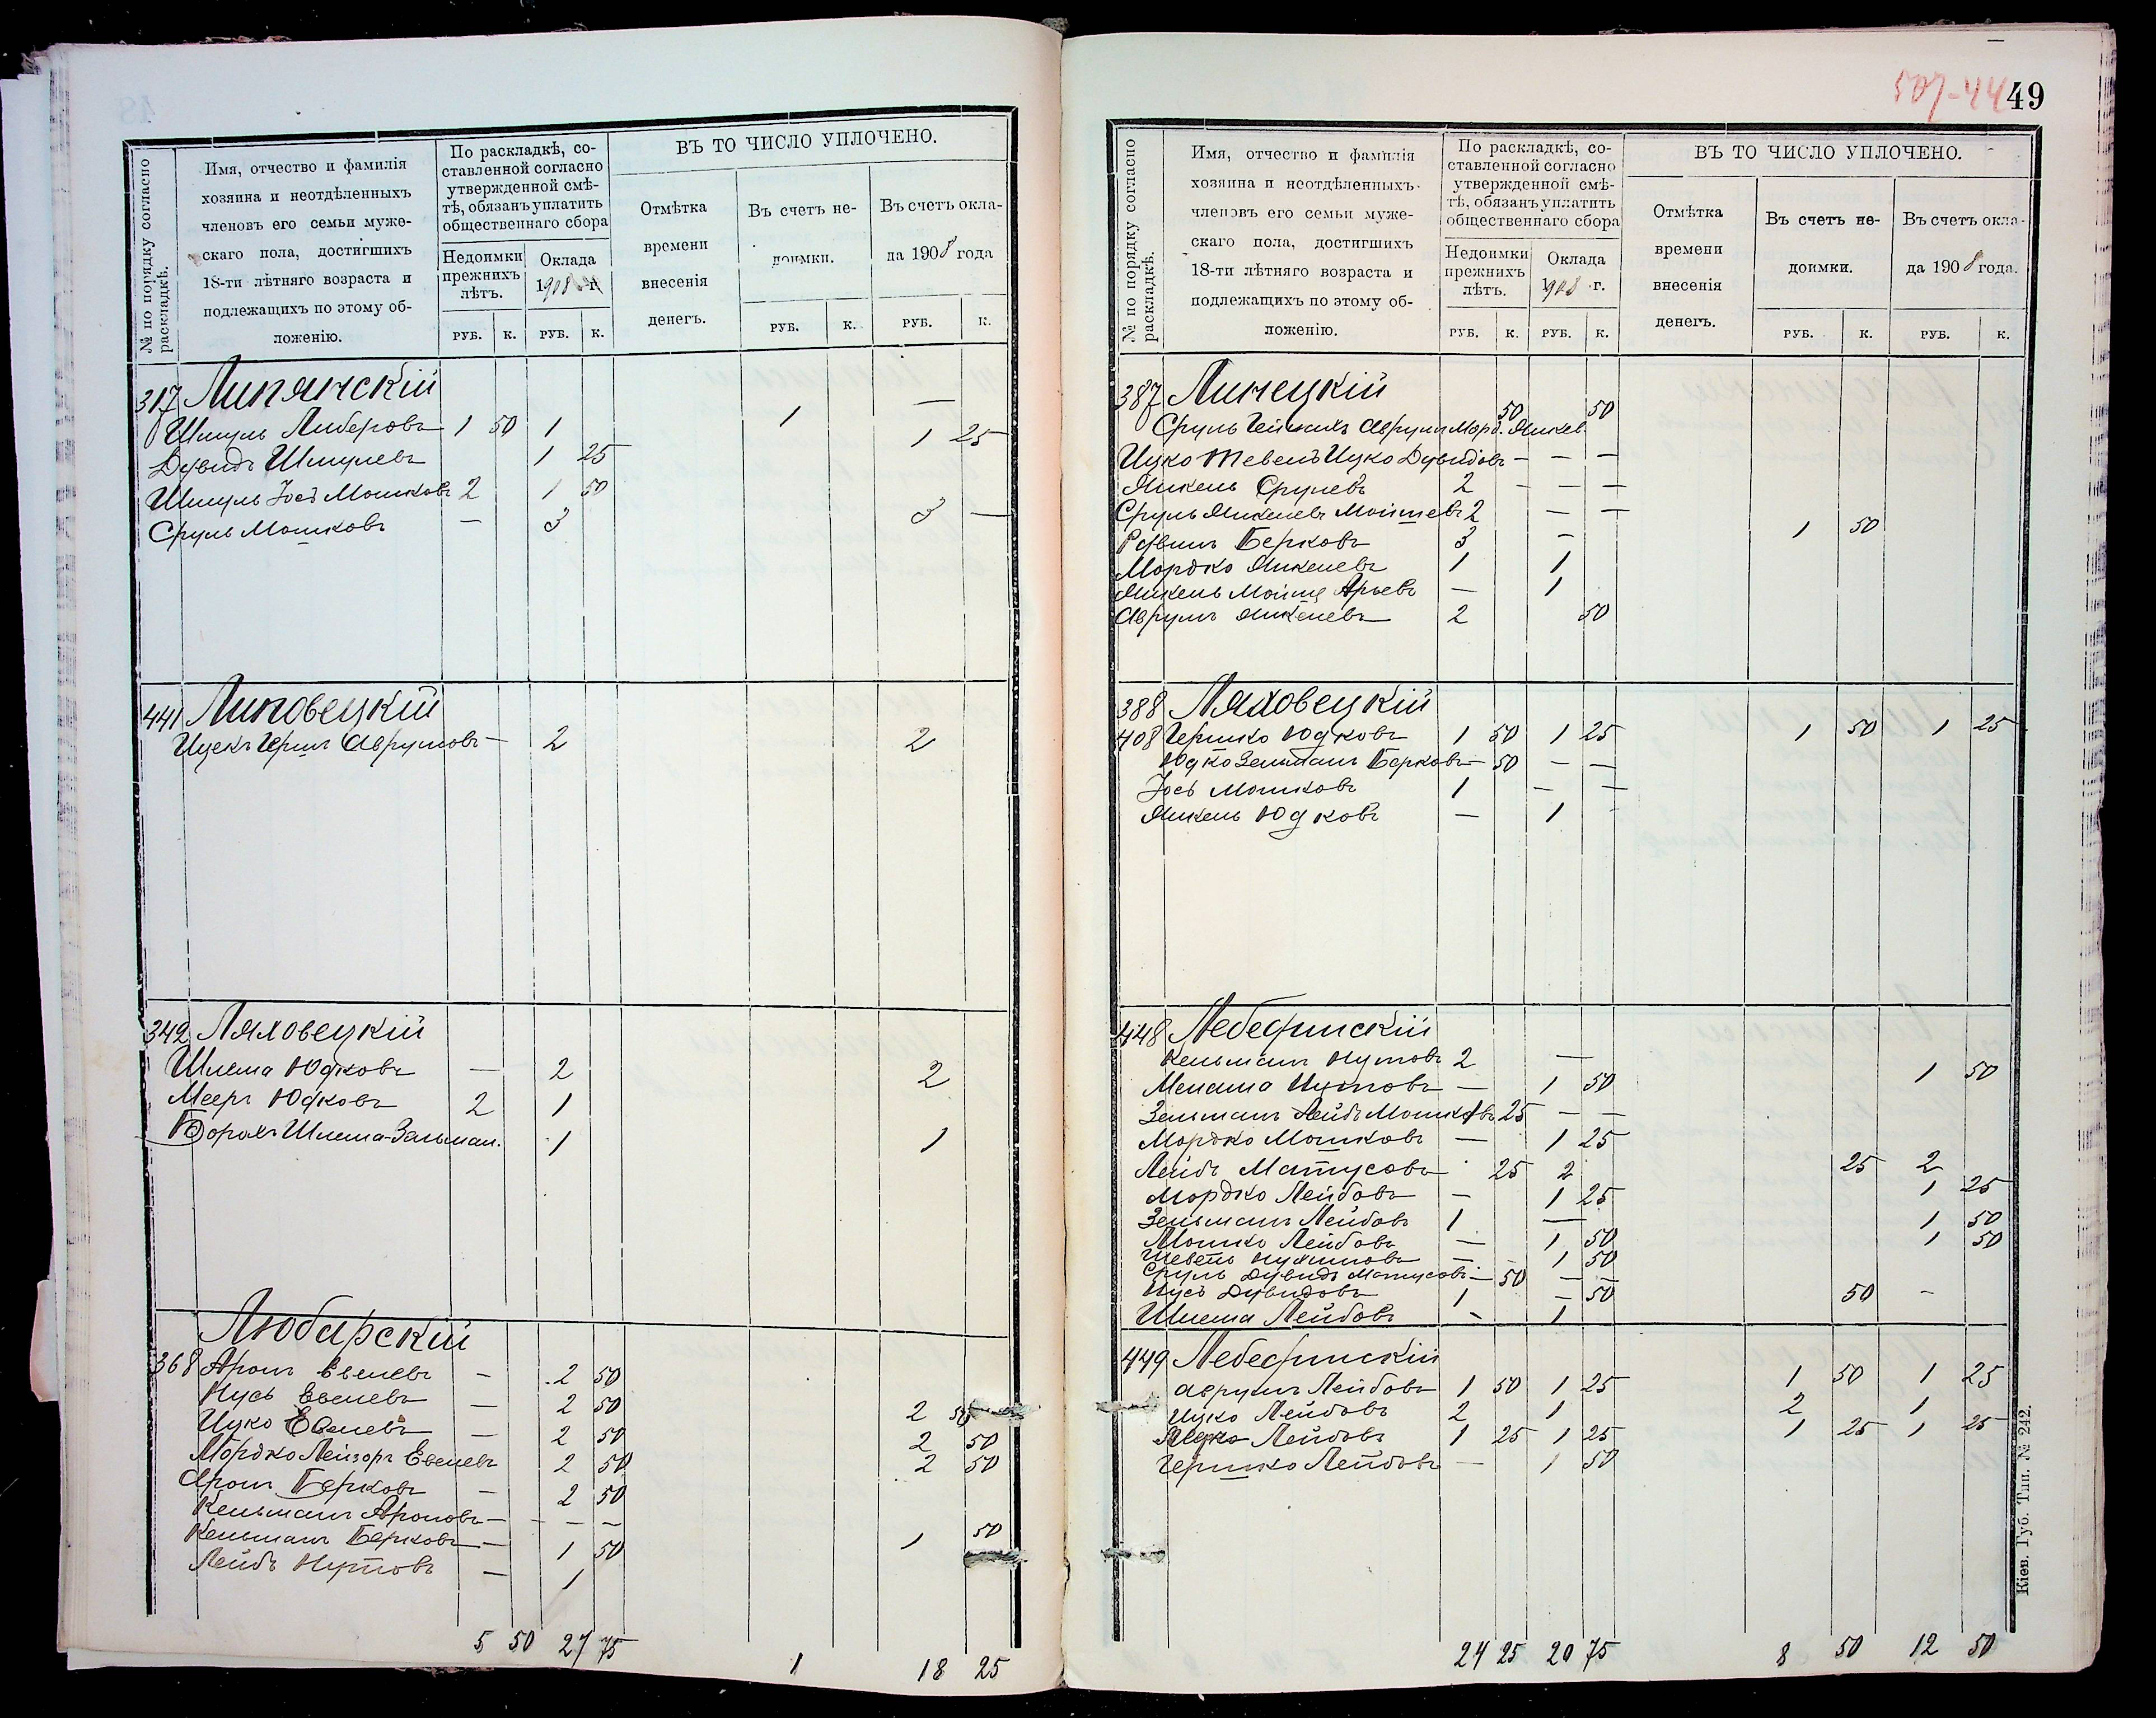 № по порядку согласно раскладкѣ.
Имя, отчество и фамилія
хозяина и неотдѣленныхъ
членовъ его семьи муже-
скаго пола, достигшихъ
18-ти лѣтняго возраста и
подлежащихъ по этому об-
ложенію.
По раскладкѣ, со-
ставленной согласно
утвержденной смѣ-
тѣ, обязанъ уплатить
общественнаго сбора
Недоимки прежнихъ лѣтъ.
Оклада 1908 г.
РУБ. К. РУБ. К.
ВЪ ТО ЧИСЛО УПЛОЧЕНО.
Отмѣтка
времени
внесенія
денегъ.
Въ счетъ не-
доимки.
Въ счетъ окла-
да 1908 года
РУБ. К. РУБ. К.
317 Липянскій —
Шмуль Либеровъ 1 50 1 1 1 25
Дувидъ Шмулевъ 1 25
Шмуль Іосъ Мошковъ 2 1 50
Сруль Мошковъ — 3 3 —
441 Липовецкій
Ицекъ Герш Аврумовъ — 2 2
342 Ляховецкій
Шлема Юдковъ — 2 2
Мееръ Юдковъ 2 1
Борохъ Шлема-Зельман. 1 1
Любарскій
368 Аронъ Евелевъ — 2 50
Нусь Евелевъ — 2 50 2 50
Ицко Евелевъ — 2 50 2 50
Мордко Лейзоръ Евелевъ 2 50 2 50
Аронъ Берковъ — 2 50
Кельманъ Ароновъ — — — —
Кельманъ Берковъ — 1 50 1 50
Лейбъ Нутовъ — 1
5 50 27 75 1 18 25
507-44
49
№ по порядку согласно раскладкѣ.
Имя, отчество и фамилія
хозяина и неотдѣленныхъ
членовъ его семьи муже-
скаго пола, достигшихъ
18-ти лѣтняго возраста и
подлежащихъ по этому об-
ложенію.
По раскладкѣ, со-
ставленной согласно
утвержденной смѣ-
тѣ, обязанъ уплатить
общественнаго сбора
Недоимки прежнихъ лѣтъ.
Оклада 1908 г.
РУБ. К. РУБ. К.
ВЪ ТО ЧИСЛО УПЛОЧЕНО.
Отмѣтка
времени
внесенія
денегъ.
Въ счетъ не-
доимки.
Въ счетъ окла-
да 1908 года.
РУБ. К. РУБ. К.
387 Линецкій
Сруль Аврумъ Морд. Янкел. 50 50
Ицко Тевель Ицко Дувидовъ — — —
Янкель Срулевъ 2 — — —
Сруль Янкелевъ Мойшев. 2 — —
Рувинъ Берковъ 3 — 1 50
Мордко Янкелевъ 1 1
Янкель Мойше Арьевъ — 1
Аврумъ Янкелевъ 2 50
388 Ляховецкій
408 Гершко Юдковъ 1 50 1 25 1 50 1 25
Юдко Зельманъ Берковъ — 50 — —
Іось Мошковъ 1 — —
Янкель Юдковъ — 1
448 Лебединскій
Кельманъ Нутовъ 2 —
Менаша Нутовъ — 1 50 1 50
Зельманъ Лейбъ Мошковъ 25 — —
Мордко Мошковъ — 1 25
Лейбъ Матусовъ 25 2 25 2
Мордко Лейбовъ — 1 25 1 25
Зельманъ Лейбовъ 1 — 1 50
Мошко Лейбовъ — 1 50 1 50
— 1 50
Сруль Дувидъ Матусовъ — 50 — —
Нусь Дувидовъ 1 — 50 50 —
Шлема Лейбовъ — 1
449 Лебединскій
Аврумъ Лейбовъ 1 50 1 25 1 50 1 25
Ицко Лейбовъ 2 1 2 1
Лейбовъ 1 25 1 25 1 25 1 25
Гершко Лейбовъ — 1 50
24 25 20 75 8 50 12 50
Кіев. Губ. Тип. № 242.